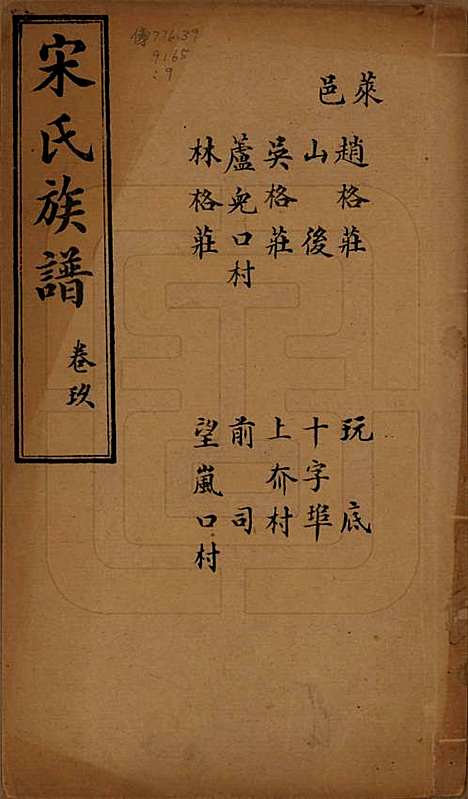 宋氏族譜
卷玖
傳776.39
9165
:9
萊
邑
趙格莊
山後
吳格莊
蘆兒口村
林格莊
玩底
十字埠
上夼村
前司
望嵐口村